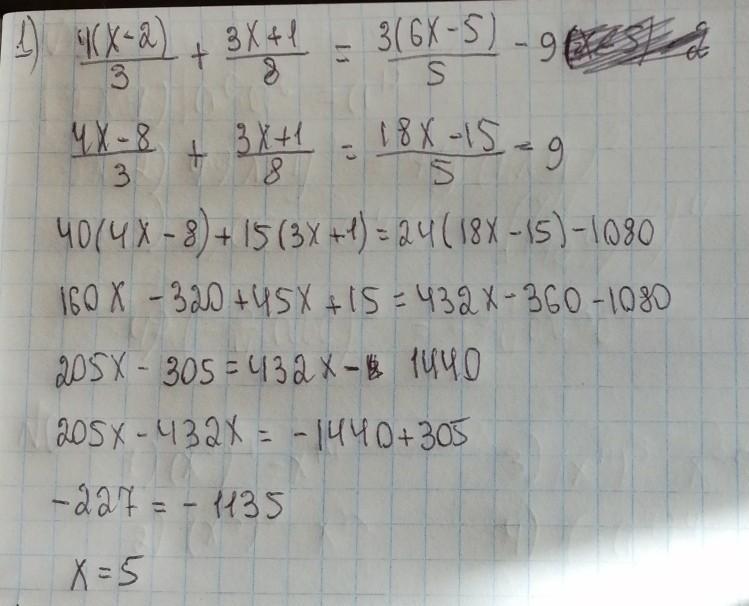 1) 4(x-2)/3 + 3x+1/8 = 3(6x-5)/5 - 9
4x-8/3 + 3x+1/8 = 18x-15/5 - 9
40(4x-8)+15(3x+1)=24(18x-15)-1080
160x-320+45x+15=432x-360-1080
205x-305=432x- 1440
205x-432x=-1440+305
-227=-1135
x=5